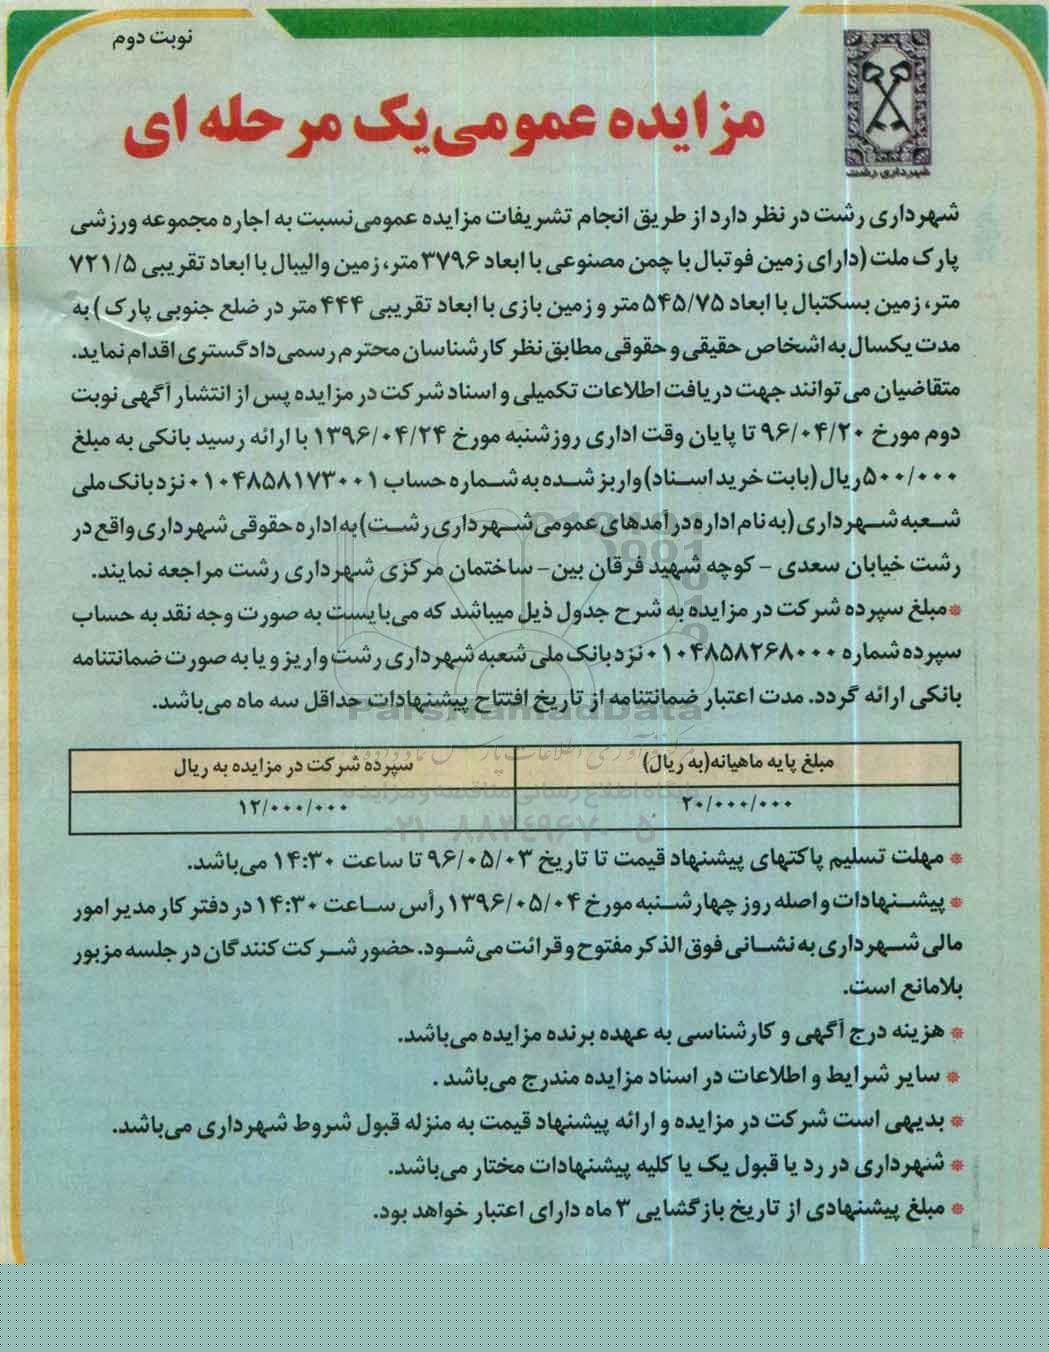 نوبت دوم
شهرداری رشت
مزایده عمومی یک مرحله ای
شهرداری رشت در نظر دارد از طریق انجام تشریفات مزایده عمومی نسبت به اجاره مجموعه ورزشی
پارک ملت (دارای زمین فوتبال با چمن مصنوعی با ابعاد ۳۷۹۶ متر، زمین والیبال با ابعاد تقریبی ۷۲۱/۵
متر، زمین بسکتبال با ابعاد ۵۴۵/۷۵ متر و زمین بازی با ابعاد تقریبی ۴۴۴ متر در ضلع جنوبی پارک) به
مدت یکسال به اشخاص حقیقی و حقوقی مطابق نظر کارشناسان محترم رسمی دادگستری اقدام نماید.
متقاضیان می توانند جهت دریافت اطلاعات تکمیلی و اسناد شرکت در مزایده پس از انتشار آگهی نوبت
دوم مورخ ۹۶/۰۴/۲۰ تا پایان وقت اداری روز شنبه مورخ ۱۳۹۶/۰۴/۲۴ با ارائه رسید بانکی به مبلغ
۵۰۰/۰۰۰ ریال (بابت خرید اسناد) واریز شده به شماره حساب ۰۱۰۴۸۵۸۱۷۳۰۰۱ نزد بانک ملی
شعبه شهرداری (به نام اداره درآمدهای عمومی شهرداری رشت) به اداره حقوقی شهرداری واقع در
رشت خیابان سعدی – کوچه شهید فرقان بین – ساختمان مرکزی شهرداری رشت مراجعه نمایند.
* مبلغ سپرده شرکت در مزایده به شرح جدول ذیل میباشد که می بایست به صورت وجه نقد به حساب
سپرده شماره ۰۱۰۴۸۵۸۲۶۸۰۰۰ نزد بانک ملی شعبه شهرداری رشت واریز و یا به صورت ضمانتنامه
بانکی ارائه گردد. مدت اعتبار ضمانتنامه از تاریخ افتتاح پیشنهادات حداقل سه ماه می باشد.
ParsNamadData
مبلغ پایه ماهیانه (به ریال) سپرده شرکت در مزایده به ریال
۲۰/۰۰۰/۰۰۰ ۱۲/۰۰۰/۰۰۰
* مهلت تسلیم پاکتهای پیشنهاد قیمت تا تاریخ ۹۶/۰۵/۰۳ تا ساعت ۱۴:۳۰ می باشد.
* پیشنهادات واصله روز چهارشنبه مورخ ۱۳۹۶/۰۵/۰۴ رأس ساعت ۱۴:۳۰ در دفتر کار مدیر امور
مالی شهرداری به نشانی فوق الذکر مفتوح و قرائت می شود. حضور شرکت کنندگان در جلسه مزبور
بلامانع است.
* هزینه درج آگهی و کارشناسی به عهده برنده مزایده می باشد.
* سایر شرایط و اطلاعات در اسناد مزایده مندرج می باشد .
* بدیهی است شرکت در مزایده و ارائه پیشنهاد قیمت به منزله قبول شروط شهرداری می باشد.
* شهرداری در رد یا قبول یک یا کلیه پیشنهادات مختار می باشد.
* مبلغ پیشنهادی از تاریخ بازگشایی ۳ ماه دارای اعتبار خواهد بود.